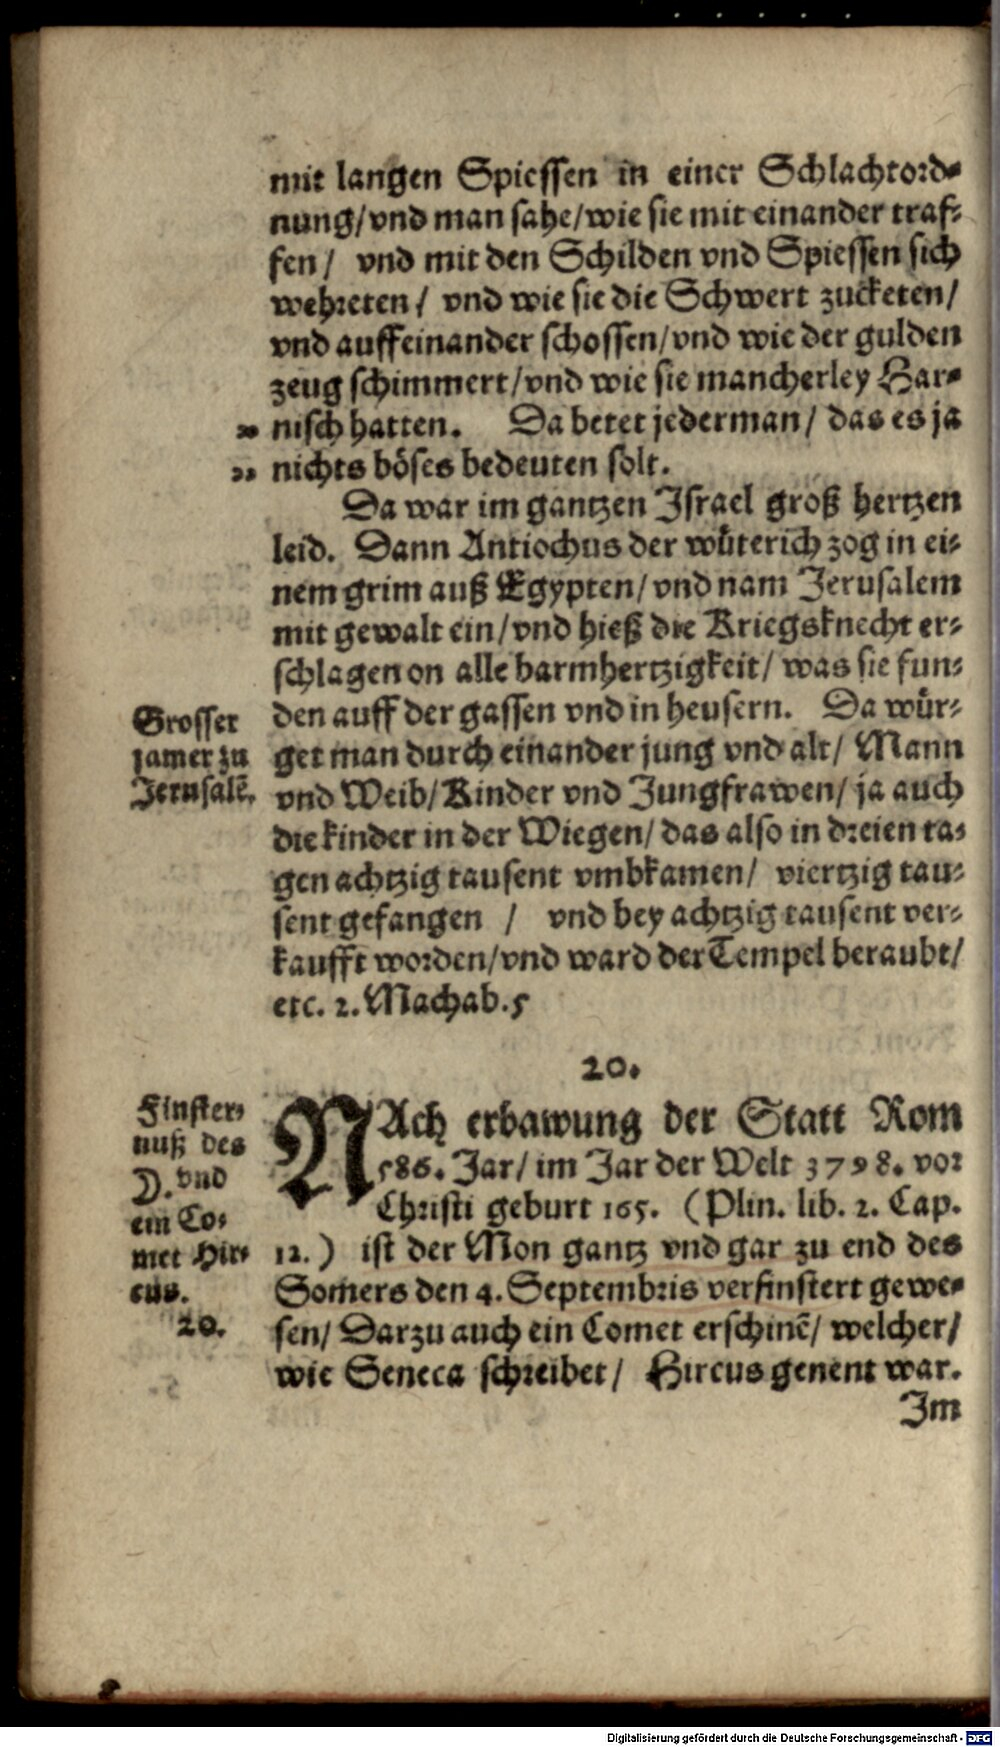 mit langen Spiessen in einer Schlachtord-
nung/vnd man sahe/wie sie mit einander traf-
fen/ vnd mit den Schilden vnd Spiessen sich
wehreten/ vnd wie sie die Schwert zucketen/
vnd auffeinander schossen/vnd wie der gulden
zeug schimmert/vnd wie sie mancherley Har-
nisch hatten. Da betet jederman/ das es ja
nichts böses bedeuten solt.
Da war im gantzen Israel groß hertzen
leid. Dann Antiochus der wüterich zog in ei-
nem grim auß Egypten/vnd nam Jerusalem
mit gewalt ein/vnd hieß die Kriegsknecht er-
schlagen on alle barmhertzigkeit/ was sie fun-
den auff der gassen vnd in heusern. Da wür-
get man durch einander jung vnd alt/ Mann
vnd Weib/Kinder vnd Jungfrawen/ ja auch
die kinder in der Wiegen/das also in dreien ta-
gen achtzig tausent vmbkamen/ viertzig tau-
sent gefangen / vnd bey achtzig tausent ver-
kaufft worden/vnd ward der Tempel beraubt/
etc. 2. Machab. 5
Grosser
jamer zu
Jerusalē.
20.
Finster-
nuß des
☽. vnd
ein Co-
met Hir-
cus.
20.
NAch erbawung der Statt Rom
586. Jar/ im Jar der Welt 3798. vor
Christi geburt 165. (Plin. lib. 2. Cap.
12.) ist der Mon gantz vnd gar zu end des
Somers den 4. Septembris verfinstert gewe-
sen/ Darzu auch ein Comet erschinē/ welcher/
wie Seneca schreibet/ Hircus genent war.
Im
Digitalisierung gefördert durch die Deutsche Forschungsgemeinschaft - DFG